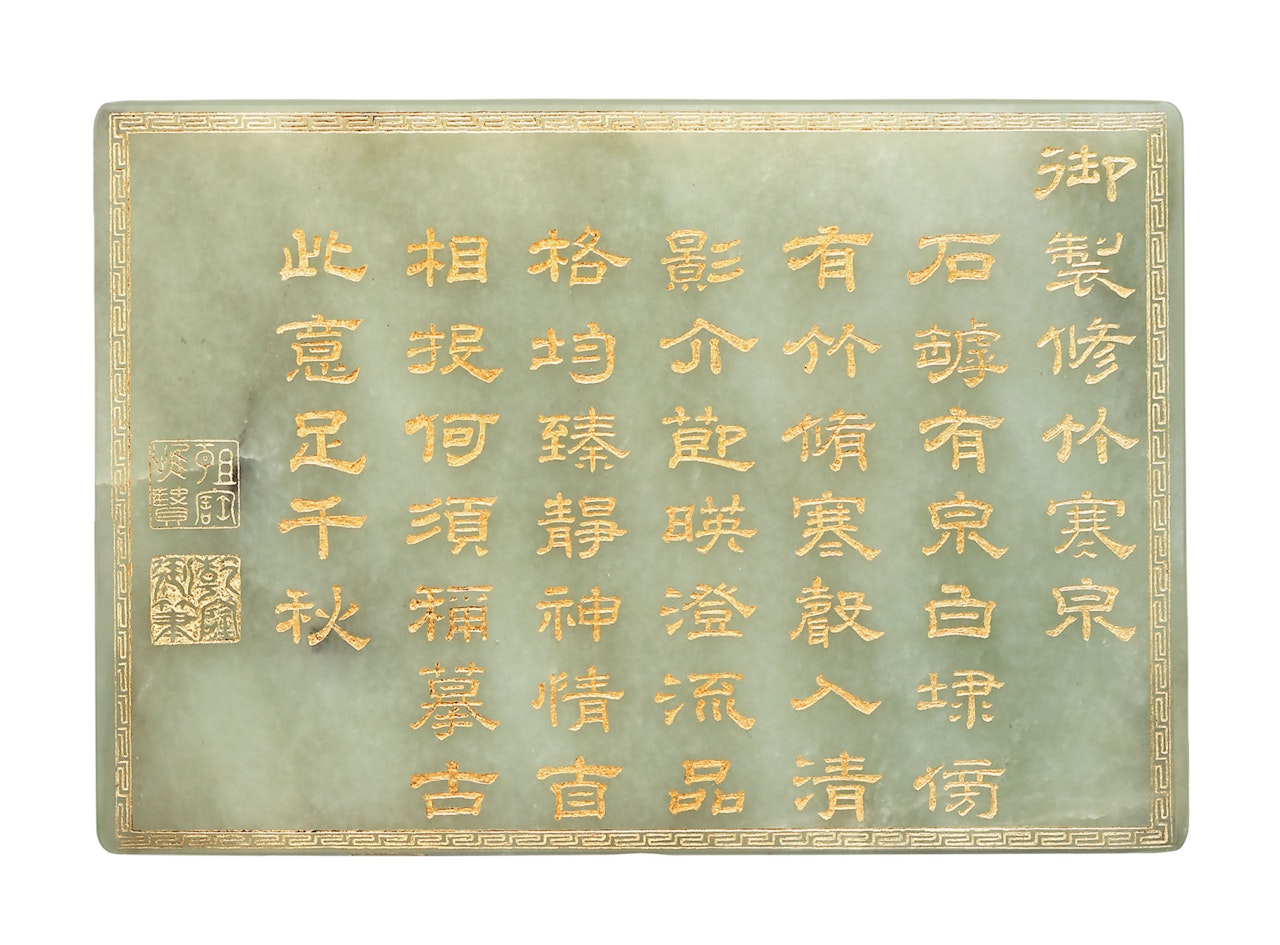 御製修竹寒泉
石罅有泉白埭傍
有竹脩寒聲入清
影介莭暎澄流品
格均臻靜神情直
相投何須稱摹古
此意足千秋
乾隆御筆